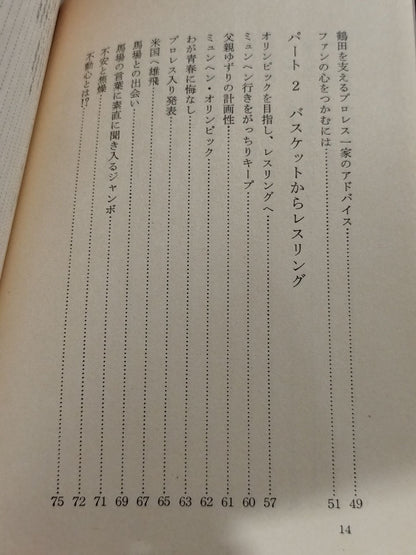 鶴田を支えるプロレス一家のアドバイス 49
ファンの心をつかむには 51
パート 2 バスケットからレスリング
オリンピックを目指し、レスリングへ 57
ミュンヘン行きをがっちりキープ 60
父親ゆずりの計画性 61
ミュンヘン・オリンピック 62
わが青春に悔なし 63
プロレス入り発表 65
米国へ雄飛 67
馬場との出会い 69
馬場の言葉に素直に聞き入るジャンボ 71
不安と焦燥 72
不動心とは!? 75
14